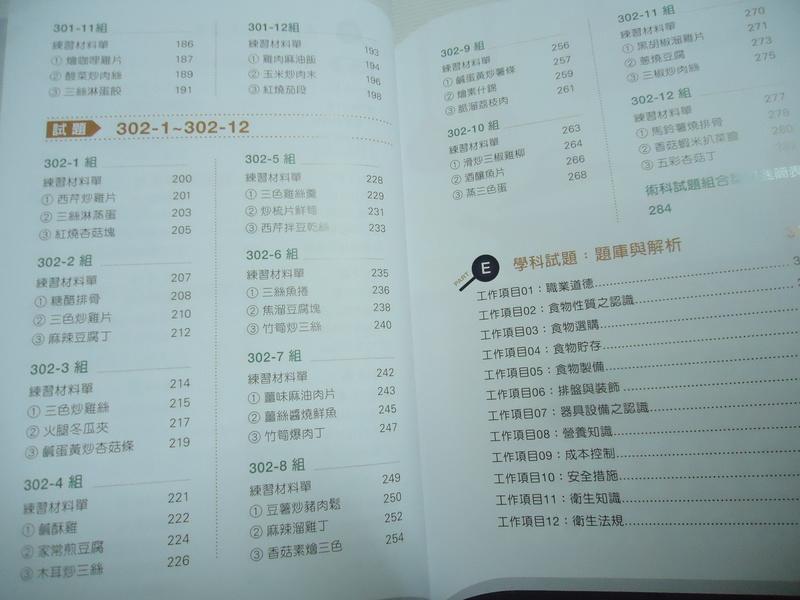 301-11組
練習材料單 186
① 燴咖哩雞片 187
② 酸菜炒肉絲 189
③ 三絲淋蛋餃 191
301-12組
練習材料單 193
① 雞肉麻油飯 194
② 玉米炒肉末 196
③ 紅燒茄段 198
試題 302-1~302-12
302-1 組
練習材料單 200
① 西芹炒雞片 201
② 三絲淋蒸蛋 203
③ 紅燒杏菇塊 205
302-2 組
練習材料單 207
① 糖醋排骨 208
② 三色炒雞片 210
③ 麻辣豆腐丁 212
302-3 組
練習材料單 214
① 三色炒雞絲 215
② 火腿冬瓜夾 217
③ 鹹蛋黃炒杏菇條 219
302-4 組
練習材料單 221
① 鹹酥雞 222
② 家常煎豆腐 224
③ 木耳炒三絲 226
302-5 組
練習材料單 228
① 三色雞絲羹 229
② 炒梳片鮮筍 231
③ 西芹拌豆乾絲 233
302-6 組
練習材料單 235
① 三絲魚捲 236
② 焦溜豆腐塊 238
③ 竹筍炒三絲 240
302-7 組
練習材料單 242
① 薑味麻油肉片 243
② 薑絲醬燒鮮魚 245
③ 竹筍爆肉丁 247
302-8 組
練習材料單 249
① 豆薯炒豬肉鬆 250
② 麻辣溜雞丁 252
③ 香菇素燴三色 254
302-9 組
練習材料單 256
① 鹹蛋黃炒薯條 257
② 燴素什錦 259
③ 脆溜荔枝肉 261
302-10 組
練習材料單 263
① 滑炒三椒雞柳 264
② 酒釀魚片 266
③ 蒸三色蛋 268
302-11 組
練習材料單 270
① 黑胡椒溜雞片 271
② 蔥燒豆腐 273
③ 三椒炒肉絲 275
302-12 組
練習材料單 277
① 馬鈴薯燒排骨 278
② 香菇蝦米扒菜膽 280
③ 五彩杏菇丁
術科試題組合
284
PART E 學科試題：題庫與解析
工作項目01：職業道德
工作項目02：食物性質之認識
工作項目03：食物選購
工作項目04：食物貯存
工作項目05：食物製備
工作項目06：排盤與裝飾
工作項目07：器具設備之認識
工作項目08：營養知識
工作項目09：成本控制
工作項目10：安全措施
工作項目11：衛生知識
工作項目12：衛生法規